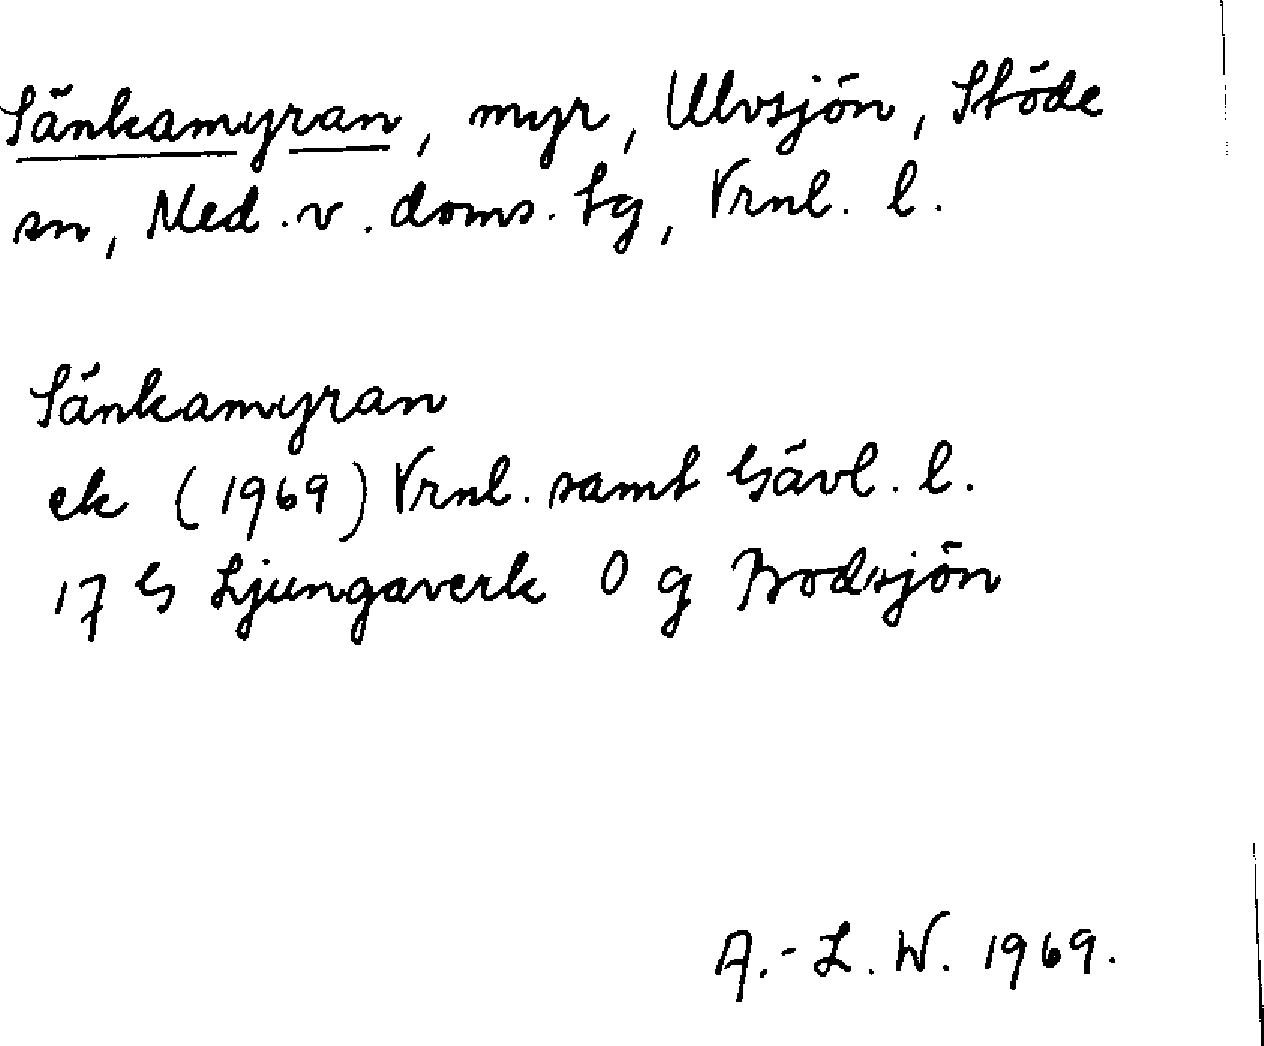 Sänkamyran, myr, Ulvsjön, Stöde
sn, Med. v. doms. tg, Vrnl. l.
Sänkamyran
ek (1969) Vrnl. samt Gävl. l.
17 G Ljungaverk O g Bodsjön
A.-L. W. 1969.